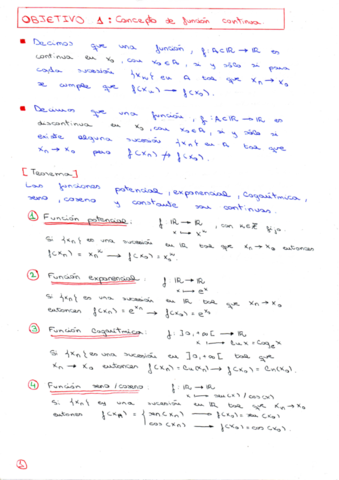 OBJETIVO 1: Concepto de función continua.
■ Decimos que una función, f: A⊂ℝ → ℝ es
continua en x₀, con x₀∈A, si y sólo si para
cada sucesión {xₙ} en A tal que xₙ → x₀
se cumple que f(xₙ) → f(x₀).
■ Decimos que una función, f: A⊂ℝ → ℝ es
discontinua en x₀, con x₀∈A, si y sólo si
existe alguna sucesión {xₙ} en A tal que
xₙ → x₀ pero f(xₙ) ↛ f(x₀).
[Teorema]
Las funciones potencial, exponencial, logarítmica,
seno, coseno y constante son continuas.
① Función potencial: f: ℝ → ℝ, con
x ↦ x^α
Si {xₙ} es una sucesión en ℝ tal que xₙ → x₀ entonces
f(xₙ) = xₙ^α → f(x₀) = x₀^α.
② Función exponencial: f: ℝ → ℝ
x ↦ eˣ
Si {xₙ} es una sucesión en ℝ tal que xₙ → x₀
entonces f(xₙ) = e^xₙ → f(x₀) = e^x₀
③ Función logarítmica: f: ]0,+∞[ → ℝ
x ↦ ln x = logₑx
Si {xₙ} es una sucesión en ]0,+∞[ tal que
xₙ → x₀ entonces f(xₙ) = ln(xₙ) → f(x₀) = ln(x₀).
④ Función seno/coseno: f: ℝ → ℝ
x ↦ sen(x)/cos(x)
Si {xₙ} es una sucesión en ℝ tal que xₙ → x₀
entonces f(xₙ) = { sen(xₙ) → f(x₀) = sen(x₀)
cos(xₙ) → f(x₀) = cos(x₀)
①